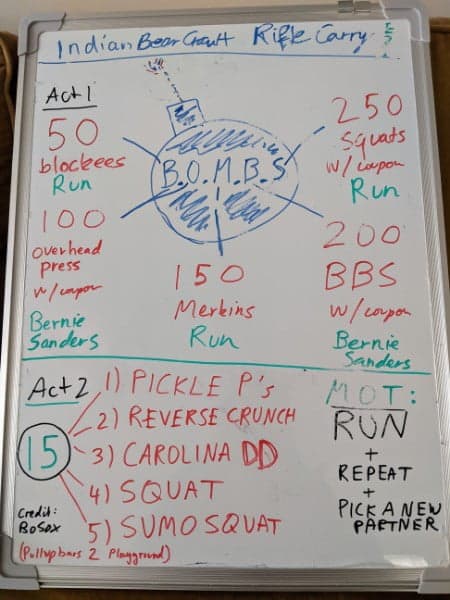 Indian Bear Crawl Rifle Carry
Act 1
B.O.M.B.S
50
blockees
Run
100
overhead
press
w/ coupon
Bernie
Sanders
150
Merkins
Run
200
BBS
w/ coupon
Bernie
Sanders
250
squats
w/ coupon
Run
Act 2
15
1) PICKLE P's
2) REVERSE CRUNCH
3) CAROLINA DD
4) SQUAT
5) SUMO SQUAT
Credit:
BoSox
(Pullupbars 2 Playground)
MOT:
RUN
+
REPEAT
+
PICK A NEW
PARTNER